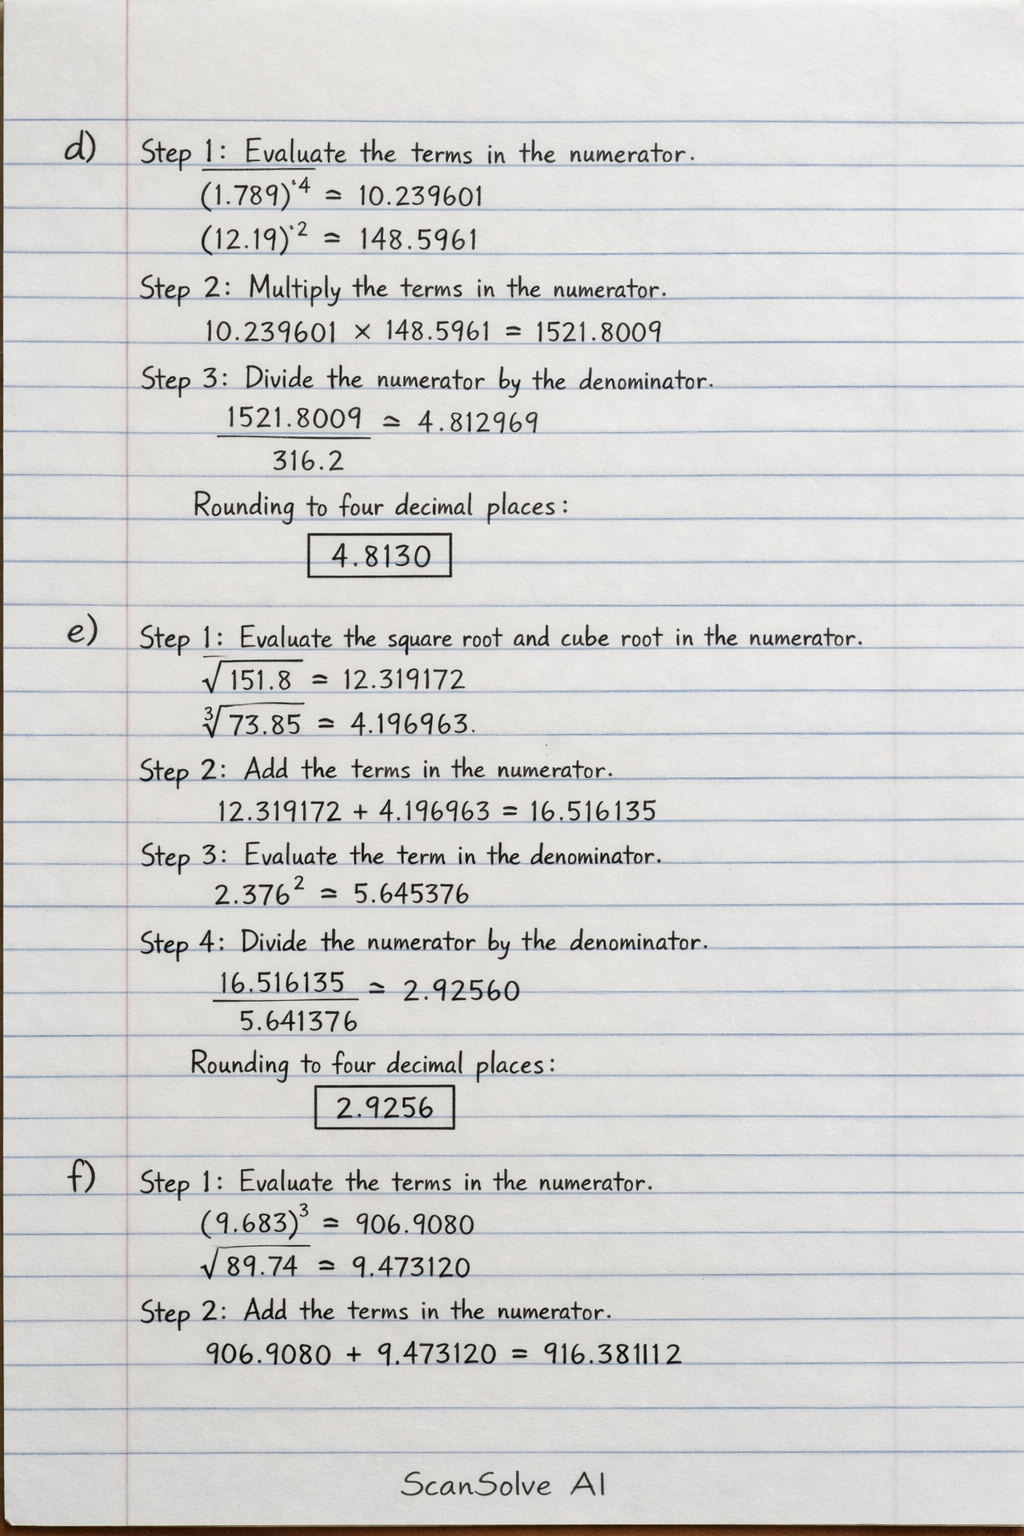 d) Step 1: Evaluate the terms in the numerator.
(1.789)^·4 ≃ 10.239601
(12.19)^·2 ≃ 148.5961
Step 2: Multiply the terms in the numerator.
10.239601 × 148.5961 = 1521.8009
Step 3: Divide the numerator by the denominator.
1521.8009 ≃ 4.812969
316.2
Rounding to four decimal places:
4.8130
e) Step 1: Evaluate the square root and cube root in the numerator.
√151.8 ≃ 12.319172
∛73.85 ≃ 4.196963.
Step 2: Add the terms in the numerator.
12.319172 + 4.196963 = 16.516135
Step 3: Evaluate the term in the denominator.
2.376² ≃ 5.645376
Step 4: Divide the numerator by the denominator.
16.516135 ≃ 2.92560
5.641376
Rounding to four decimal places:
2.9256
f) Step 1: Evaluate the terms in the numerator.
(9.683)³ ≃ 906.9080
√89.74 ≃ 9.473120
Step 2: Add the terms in the numerator.
906.9080 + 9.473120 = 916.381112
ScanSolve AI